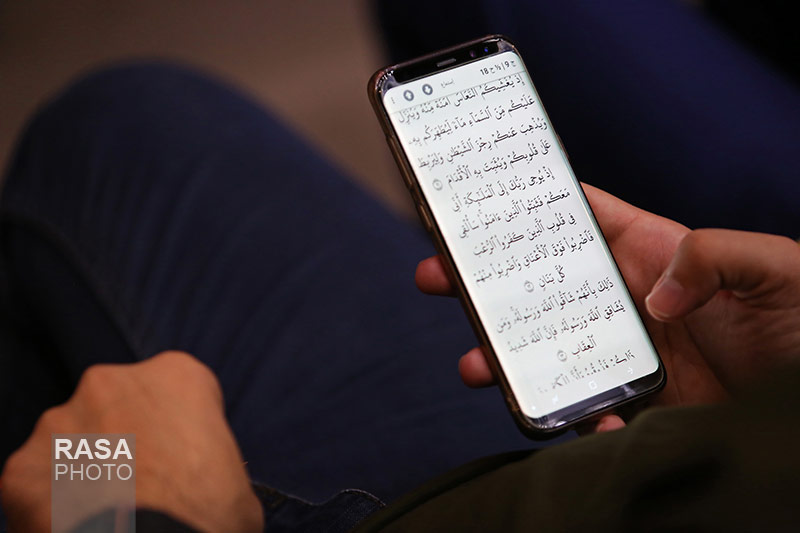 ج 9 | ½ ح 18
استماع
إِذْ يُغَشِّيكُمُ ٱلنُّعَاسَ أَمَنَةً مِّنْهُ وَيُنَزِّلُ
عَلَيْكُم مِّنَ ٱلسَّمَآءِ مَآءً لِّيُطَهِّرَكُم بِهِۦ
وَيُذْهِبَ عَنكُمْ رِجْزَ ٱلشَّيْطَٰنِ وَلِيَرْبِطَ
عَلَىٰ قُلُوبِكُمْ وَيُثَبِّتَ بِهِ ٱلْأَقْدَامَ ⑪
إِذْ يُوحِى رَبُّكَ إِلَى ٱلْمَلَٰٓئِكَةِ أَنِّى
مَعَكُمْ فَثَبِّتُوا۟ ٱلَّذِينَ ءَامَنُوا۟ سَأُلْقِى
فِى قُلُوبِ ٱلَّذِينَ كَفَرُوا۟ ٱلرُّعْبَ
فَٱضْرِبُوا۟ فَوْقَ ٱلْأَعْنَاقِ وَٱضْرِبُوا۟ مِنْهُمْ
كُلَّ بَنَانٍ ⑫
ذَٰلِكَ بِأَنَّهُمْ شَآقُّوا۟ ٱللَّهَ وَرَسُولَهُۥ وَمَن
يُشَاقِقِ ٱللَّهَ وَرَسُولَهُۥ فَإِنَّ ٱللَّهَ شَدِيدُ
ٱلْعِقَابِ ⑬
RASA
PHOTO